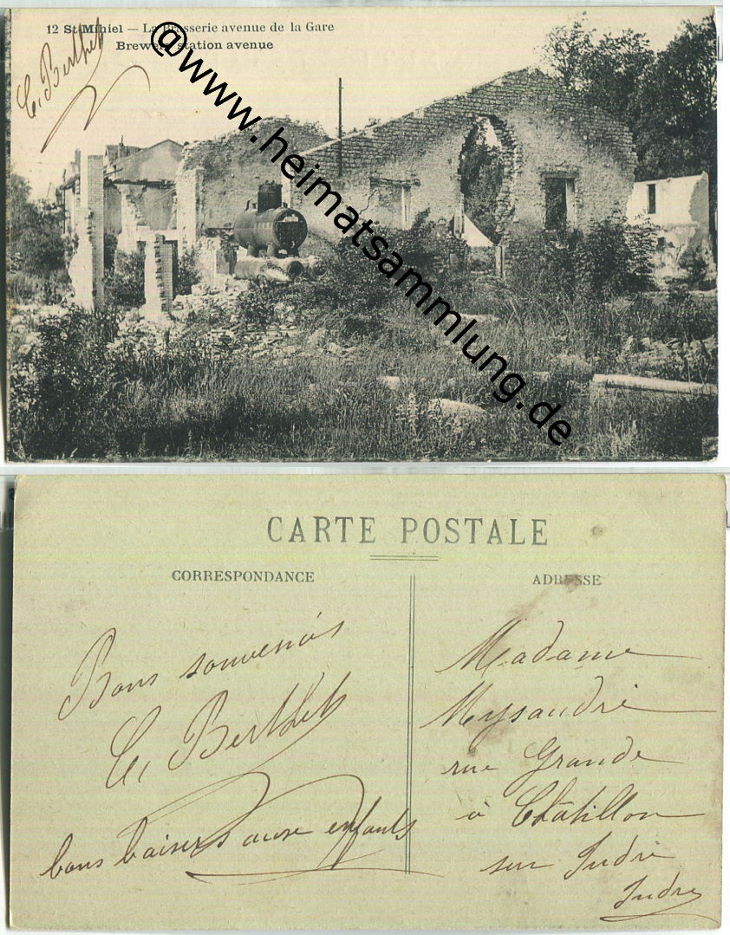 12 St-Mihiel — La Brasserie avenue de la Gare
Brewery station avenue
C. Berthet
@www.heimatsammlung.de
CARTE POSTALE
CORRESPONDANCE
ADRESSE
Bons souvenirs
C. Berthet
bons baisers aux enfants
Madame
rue Grande
à Châtillon
sur Indre
Indre